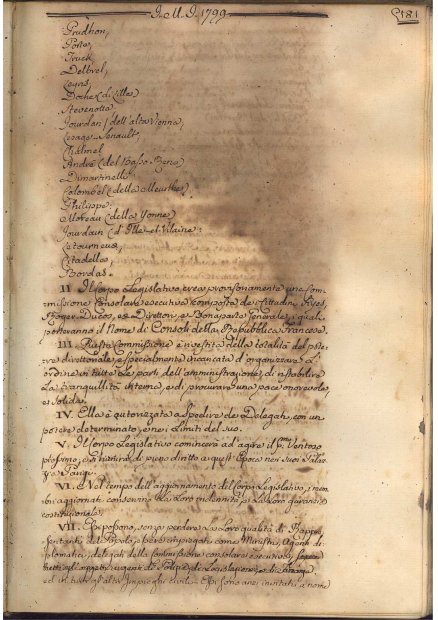 J. M. J. 1799.
181
Prudhon,
Porte,
Truck,
Delbrel,
Doche (di Lille,
Stevenotte,
Jourdan (dell'alta Vienna,
Lesage-Senault,
Chalmel,
André (del Basso Reno,
Dimartinelli,
Colombel (della Meurthe,
Philippe,
Moreau (della Yonne,
Jourdain (d'Ille-et-Vilaine:
Letourneux,
Citadella,
Bordas.
II. Il Corpo Legislativo crea provvisoriamente una Com-
missione Consolare esecutiva composta de' Cittadini
Roger Ducos, ex-Direttori, e Bonaparte Generale, i quali
porteranno il Nome di Consoli della Repubblica Francese.
III. Questa Commissione è rivestita della totalità del potere
direttoriale, e specialmente incaricata d'organizzare L'
ordine in tutte le parti dell'amministrazione, di ristabilire
La tranquillità interna, e di procurare una pace onorevole,
e solida.
IV. Essa è autorizzata a spedire dei Delegati, con un
potere determinato, e nei Limiti del suo.
V. Il Corpo Legislativo comincerà ad agire il Ventoso
prossimo; e si riunirà di pieno diritto a quest'Epoca nei suoi Palaz-
a Parigi.
VI. Nel tempo dell'aggiornamento del Corpo Legislativo, i mem-
bri aggiornati conservano La Loro indennità, e La Loro garanzia
costituzionale.
VII. Essi possono, senza perdere La Loro qualità di Rappre-
sentanti del Popolo, essere impiegati come Ministri, Agenti di-
plomatici, delegati della Commissione consolare esecutiva,
ed in tutti gl'altri Impieghi Civili. Essi sono anzi invitati a nome